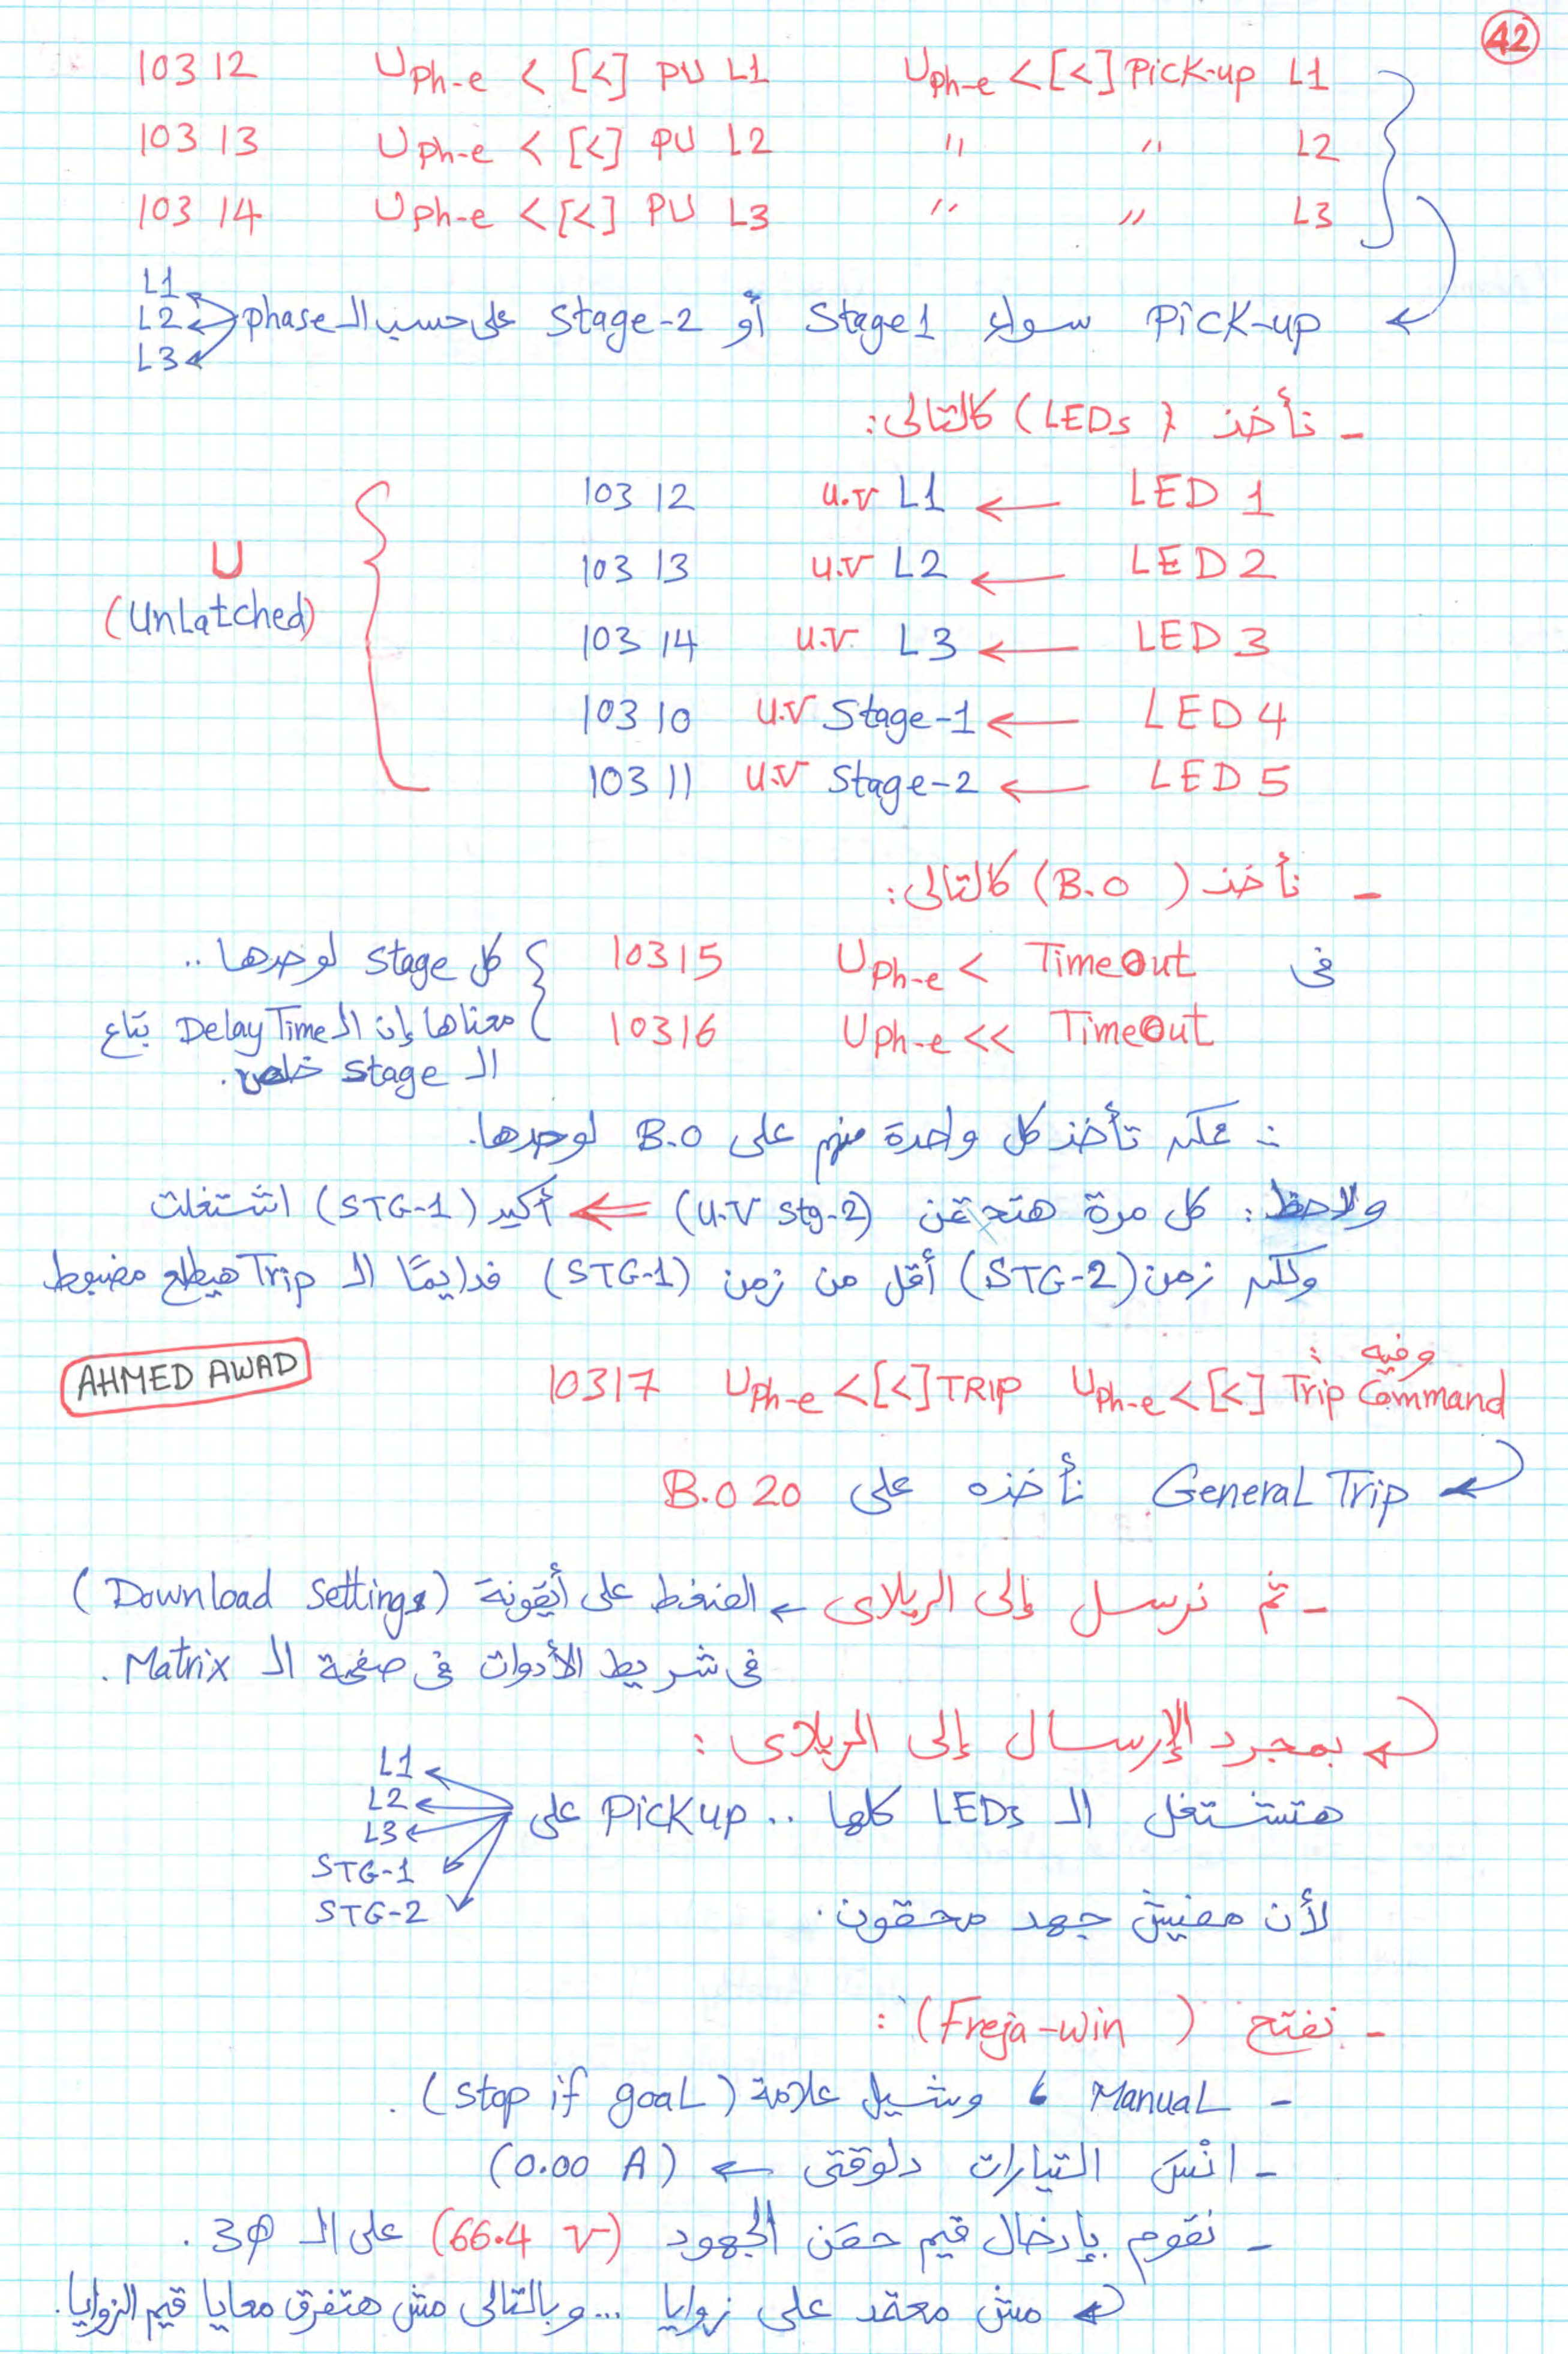 42
10312 Uph-e < [<] PU L1 Uph-e < [<] Pick-up L1
10313 Uph-e < [<] PU L2 " " L2
10314 Uph-e < [<] PU L3 " " L3
Pick-up سواء Stage1 أو Stage-2 على حسب الـ phase
L1
L2
L3
- نأخذ (LEDs) كالتالى:
LED 1 ← u.v L1 10312
LED 2 ← u.v L2 10313
LED 3 ← u.v L3 10314
LED 4 ← u.v Stage-1 10310
LED 5 ← u.v Stage-2 10311
U
(Unlatched)
- نأخذ (B.O) كالتالى:
فى Uph-e < TimeOut 10315
Uph-e << TimeOut 10316
كل Stage لوحدها ..
معناها إن الـ Delay Time بتاع
الـ Stage خلص.
∴ ممكن تأخذ كل واحدة منهم على B.O لوحدها.
ولاحظ: كل مرة هتحقن (U.V Stg-2) ⇐ أكيد (STG-1) اشتغلت
ولكن زمن (STG-2) أقل من زمن (STG-1) فدايمًا الـ Trip هيطلع مضبوط
وفيه:
10317 Uph-e <[<] TRIP Uph-e <[<] Trip Command
AHMED AWAD
General Trip نأخذه على B.O 20
- ثم نرسل إلى الريلاى ← الضغط على أيقونة (Download Settings)
فى شريط الأدوات فى صفحة الـ Matrix.
بمجرد الإرسال إلى الريلاى:
هتشتغل الـ LEDs كلها .. Pickup على
L1
L2
L3
STG-1
STG-2
لأن مفيش جهد محقون.
- نفتح (Freja-win):
- Manual ، ونشيل علامة (Stop if goal).
- انْسَ التيارات دلوقتى ← (0.00 A)
- نقوم بإدخال قيم حقن الجهود (66.4 v) على الـ 3φ.
مش معتمد على زوايا ... وبالتالى مش هتفرق معايا قيم الزوايا.